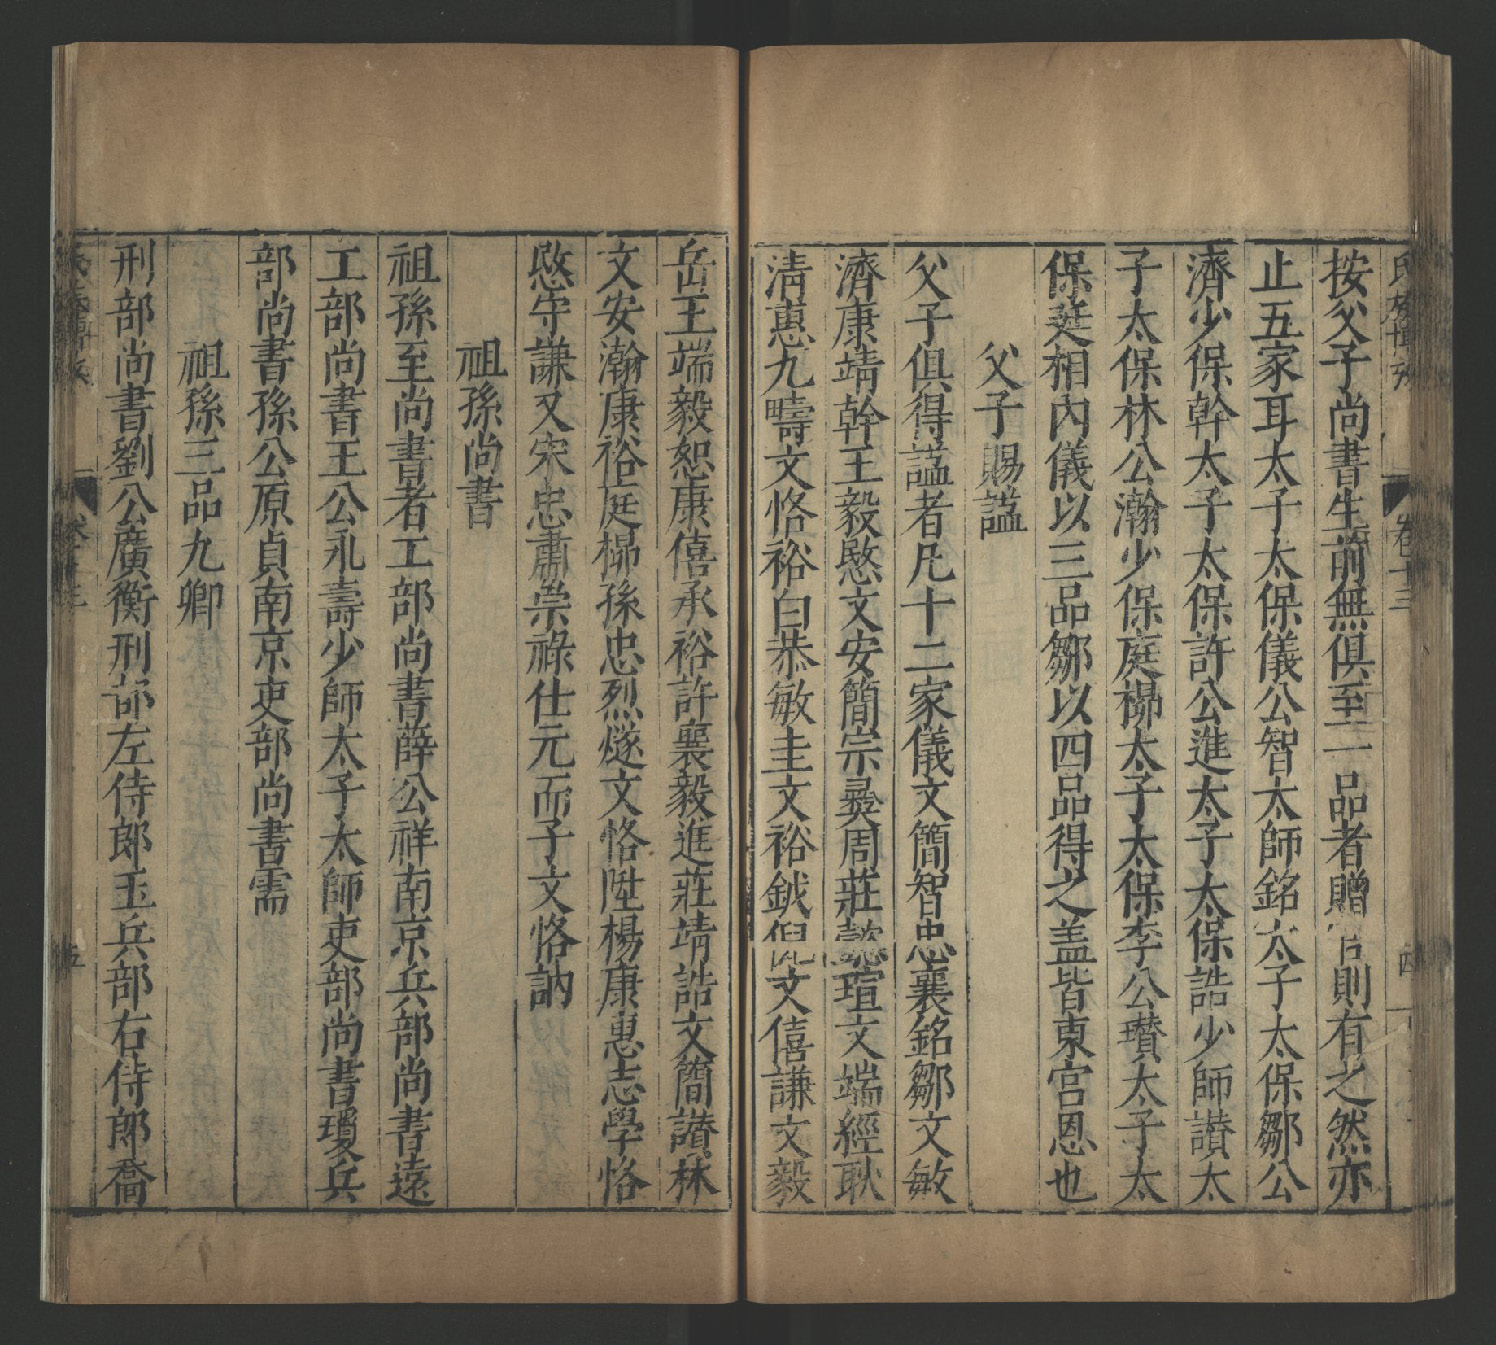 按父子尚書生前無俱至一品者贈官則有之然亦
止五家耳太子太保儀公智太師銘太子太保鄒公
濟少保幹太子太保許公進太子太保誥少師讃太
子太保林公瀚少保庭㭿太子太保李公瓚太子太
保莛相內儀以三品鄒以四品得之盖皆東宫恩也
父子賜諡
父子俱得諡者凡十二家儀文簡智忠襄銘鄒文敏
濟康靖幹王毅愍文安簡宗彞周莊懿瑄文端經耿
清惠九疇文恪裕白恭敏圭文裕鉞倪文僖謙文毅
岳王端毅恕康僖承裕許襄毅進莊靖誥文簡讃林
文安瀚康裕庭㭿孫忠烈燧文恪陞楊康惠志學恪
愍守謙又宋忠肅崇祿仕元而子文恪訥
祖孫尚書
祖孫至尚書者工部尚書薛公祥南京兵部尚書遠
工部尚書王公永壽少師太子太師吏部尚書瓊兵
部尚書孫公原貞南京吏部尚書需
祖孫三品九卿
刑部尚書劉公廣衡刑部左侍郎玉兵部右侍郎喬
卷十三
四
五